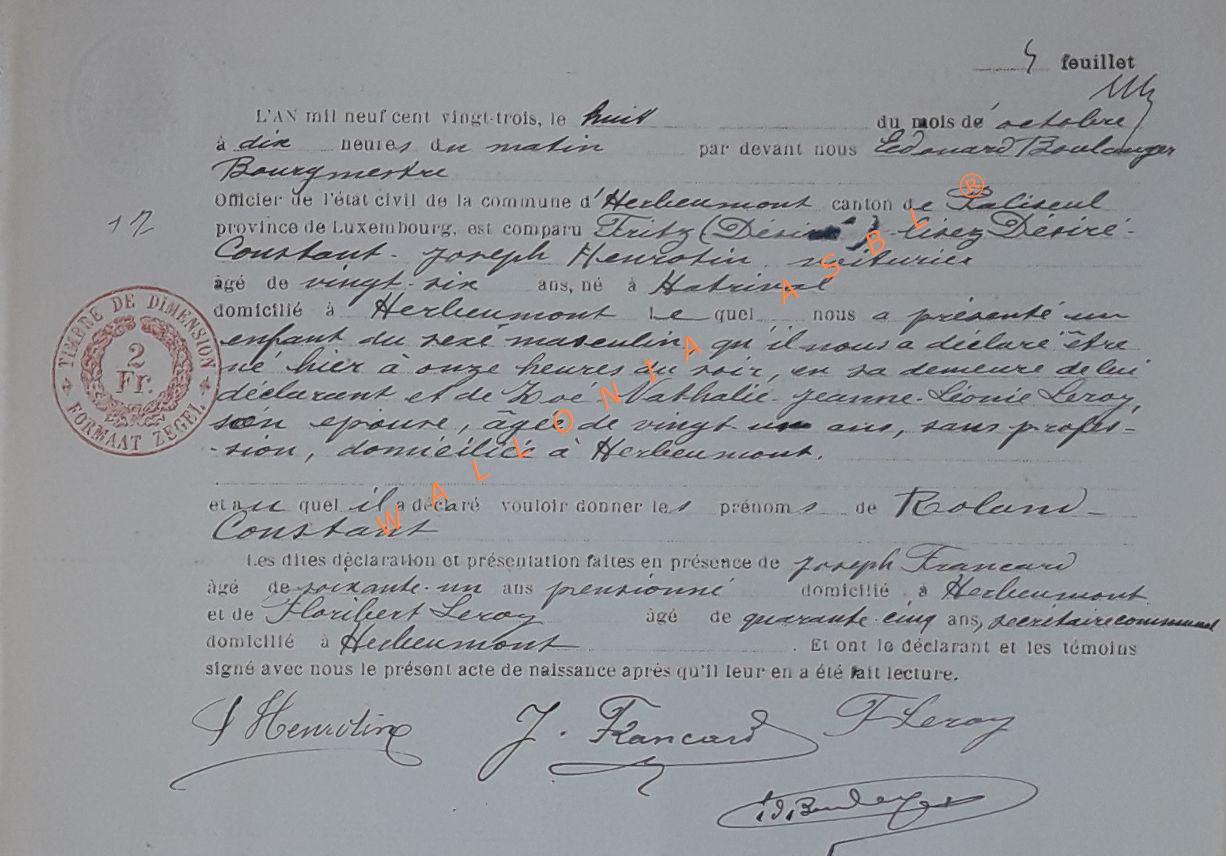 5 feuillet
L'AN mil neuf cent vingt-trois, le huit du mois de octobre
à dix heures du matin par devant nous Edouard Boulanger
Bourgmestre
Officier de l'état civil de la commune d'Herbeumont canton de Paliseul
17
province de Luxembourg, est comparu Fritz (Désiré) lisez Désiré-
Constant-Joseph Henrotin, voiturier
âgé de vingt-six ans, né à Hatrival
domicilié à Herbeumont Le quel nous a présenté un
enfant du sexe masculin qu'il nous a déclaré être
né hier à onze heures du soir, en sa demeure de lui
déclarant et de Zoé-Nathalie-Jeanne-Léonie Leroy,
son épouse, âgée de vingt un ans, sans profes-
-sion, domiciliée à Herbeumont.
et au quel il a déclaré vouloir donner les prénoms de Roland-
Constant
Les dites déclaration et présentation faites en présence de Joseph Francard
âgé de soixante-un ans pensionné domicilié à Herbeumont
et de Floribert Leroy âgé de quarante-cinq ans, secrétaire communal
domicilié à Herbeumont. Et ont le déclarant et les témoins
signé avec nous le présent acte de naissance après qu'il leur en a été fait lecture.
Henrotin J. Francard F Leroy
Ed Boulanger
TIMBRE DE DIMENSION
2
Fr.
FORMAAT ZEGEL
WALLONIA ASBL ®